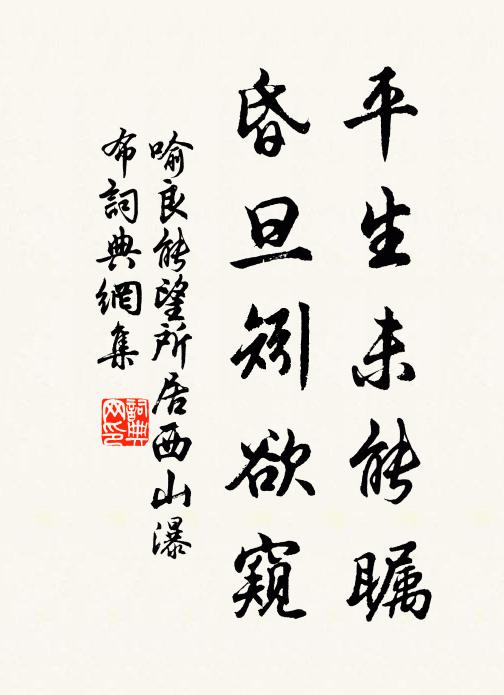 平生未能瞩
昏旦矧欲窥
喻良能望所居西山瀑
布詞典網集
詞典网印